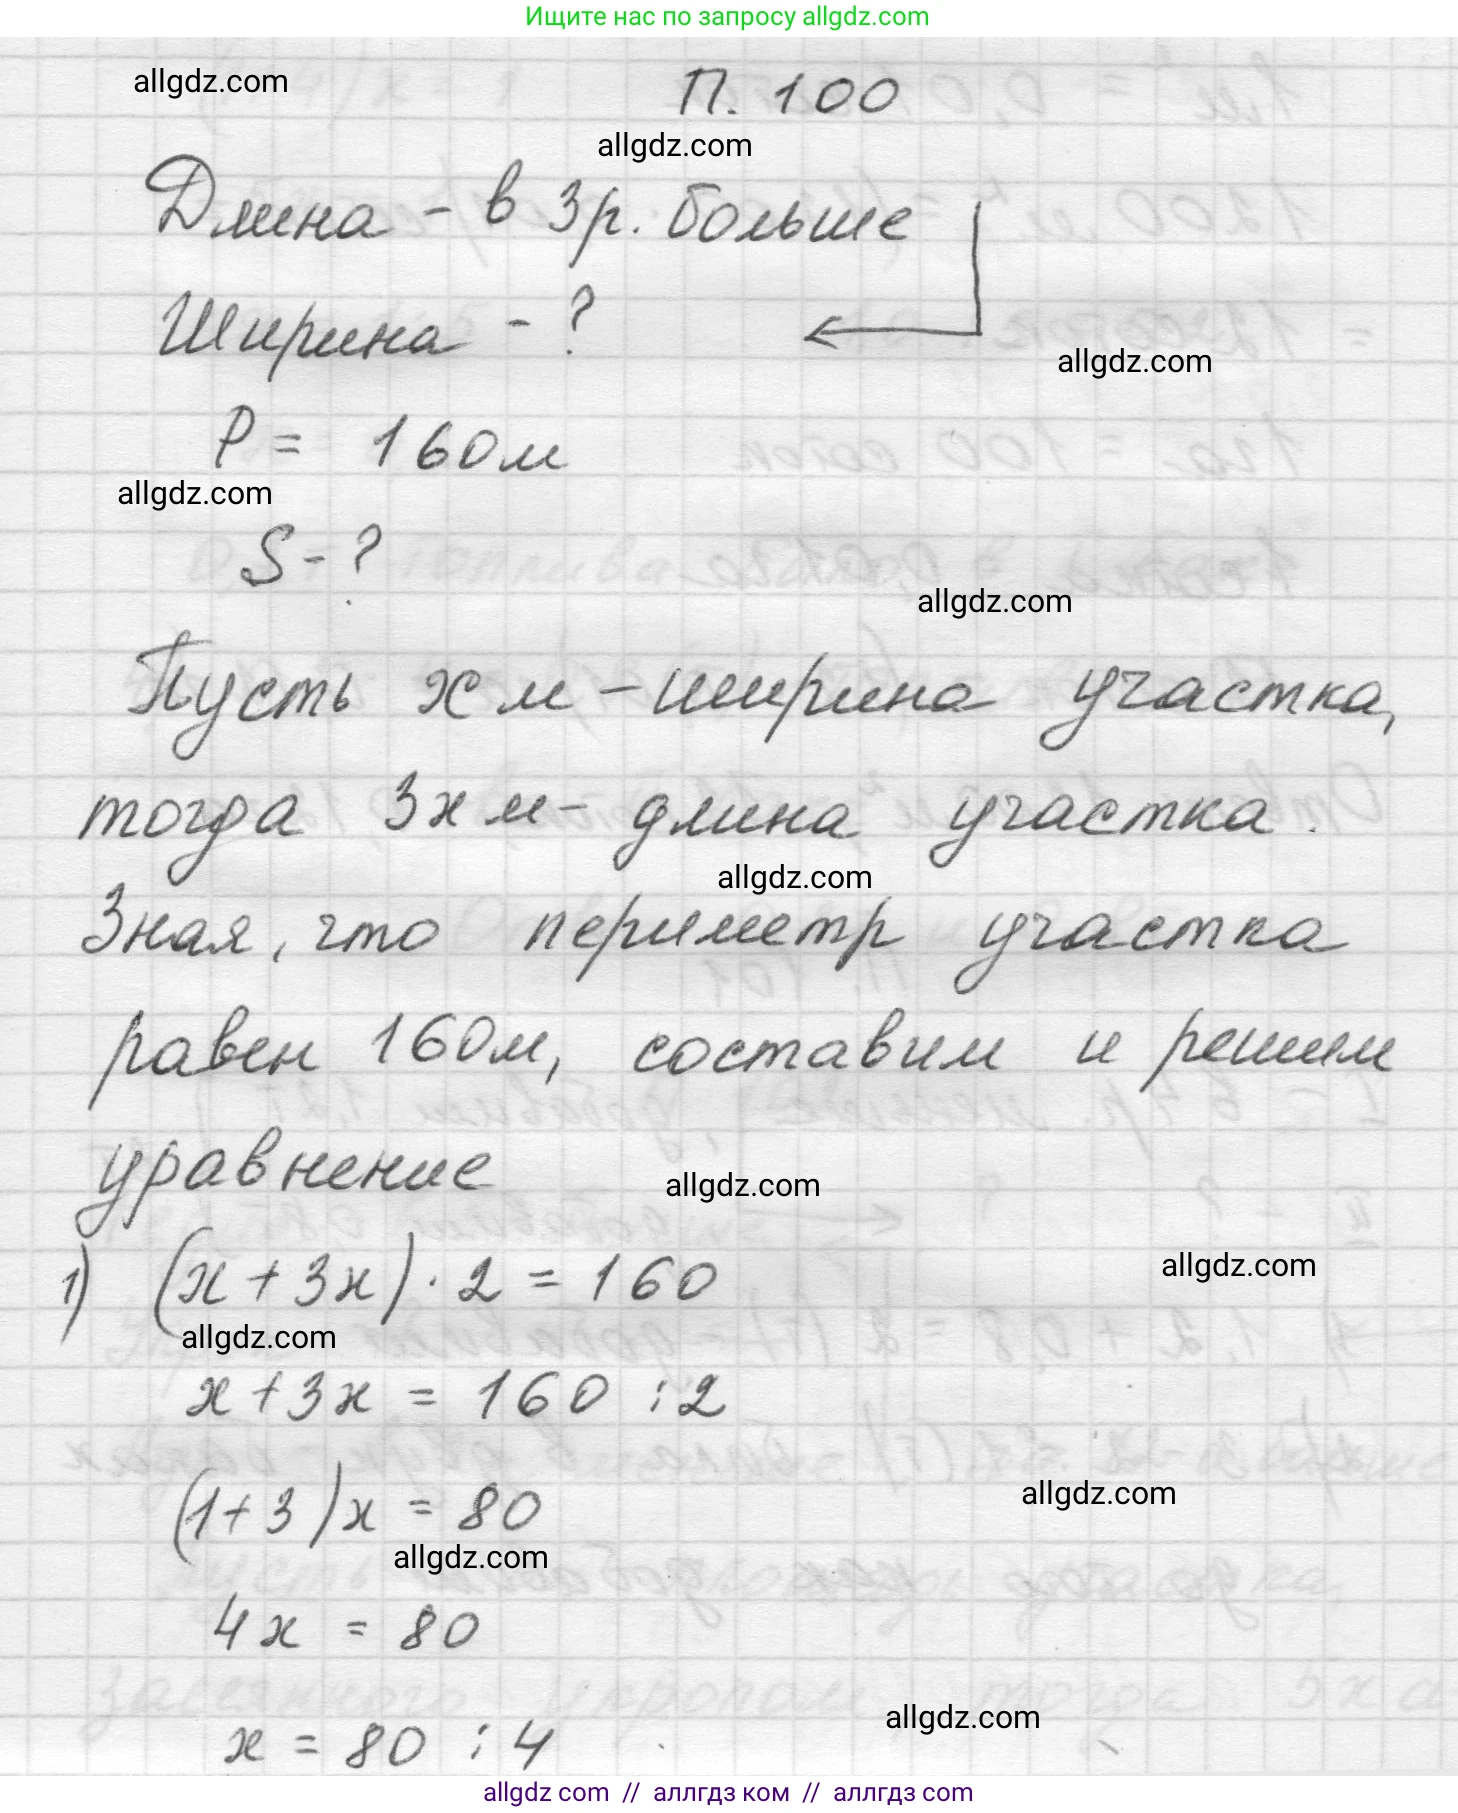 Ищите нас по запросу allgdz.com
allgdz.com
П. 100
allgdz.com
Длина - в 3 р. больше
Ширина - ?
allgdz.com
P = 160 м
allgdz.com
S - ?
allgdz.com
Пусть x м - ширина участка,
тогда 3x м - длина участка.
allgdz.com
Зная, что периметр участка
равен 160 м, составим и решим
уравнение
allgdz.com
1) (x + 3x) · 2 = 160
allgdz.com
allgdz.com
x + 3x = 160 : 2
(1 + 3) x = 80
allgdz.com
allgdz.com
4x = 80
allgdz.com
x = 80 : 4
allgdz.com // аллгдз ком // аллгдз.com